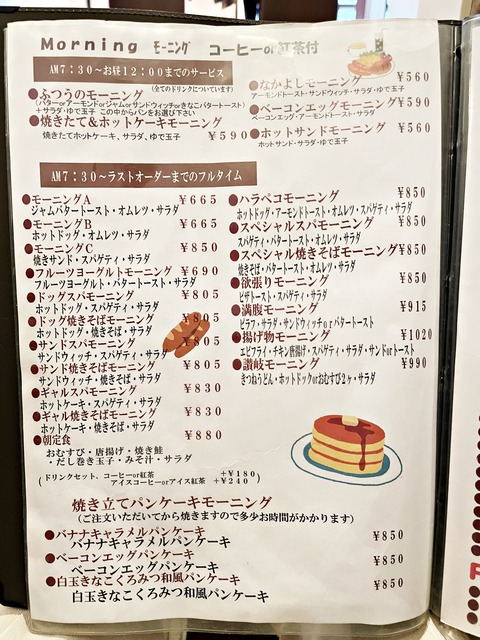 Morning モーニング コーヒーor紅茶付
AM7:30～お昼12:00までのサービス
(全てのドリンクについています)
●ふつうのモーニング
(バターorアーモンドorジャムorサンドウィッチorきなこバタートースト)
+サラダ、ゆで玉子 この中からパンをお選び下さい
●焼きたて&ホットケーキモーニング
焼きたてホットケーキ、サラダ、ゆで玉子 ¥590
●なかよしモーニング ¥560
アーモンドトースト・サンドウィッチ・サラダ・ゆで玉子
●ベーコンエッグモーニング ¥590
ベーコンエッグ・アーモンドトースト・サラダ
●ホットサンドモーニング ¥560
ホットサンド・サラダ・ゆで玉子
AM7:30～ラストオーダーまでのフルタイム
●モーニングA ¥665
ジャムバタートースト・オムレツ・サラダ
●モーニングB ¥665
ホットドッグ・オムレツ・サラダ
●モーニングC ¥850
焼きサンド・スパゲティ・サラダ
●フルーツヨーグルトモーニング ¥690
フルーツヨーグルト・バタートースト・サラダ
●ドッグスパモーニング ¥805
ホットドッグ・スパゲティ・サラダ
●ドッグ焼きそばモーニング ¥805
ホットドッグ・焼きそば・サラダ
●サンドスパモーニング ¥805
サンドウィッチ・スパゲティ・サラダ
●サンド焼きそばモーニング ¥805
サンドウィッチ・焼きそば・サラダ
●ギャルスパモーニング ¥830
ホットケーキ・スパゲティ・サラダ
●ギャル焼きそばモーニング ¥830
ホットケーキ・焼きそば・サラダ
●朝定食 ¥880
おむすび・唐揚げ・焼き鮭
・だし巻き玉子・みそ汁・サラダ
(ドリンクセット、コーヒーor紅茶 +¥180)
アイスコーヒーorアイス紅茶 +¥240
●ハラペコモーニング ¥850
ホットドッグ・アーモンドトースト・オムレツ・サラダ
●スペシャルスパモーニング ¥850
スパゲティ・バタートースト・オムレツ・サラダ
●スペシャル焼きそばモーニング ¥850
焼きそば・バタートースト・オムレツ・サラダ
●欲張りモーニング ¥850
ピザトースト・スパゲティ・サラダ
●満腹モーニング ¥915
ピラフ・サラダ・サンドウィッチorバタートースト
●揚げ物モーニング ¥1020
エビフライ・チキン唐揚げ・スパゲティ・サラダ・サンドorトースト
●讃岐モーニング ¥990
きつねうどん・ホットドックorおむすび2ヶ・サラダ
焼き立てパンケーキモーニング
(ご注文いただいてから焼きますので多少お時間がかかります)
●バナナキャラメルパンケーキ ¥850
バナナキャラメルパンケーキ
●ベーコンエッグパンケーキ ¥850
ベーコンエッグパンケーキ
●白玉きなこくろみつ和風パンケーキ ¥850
白玉きなこくろみつ和風パンケーキ